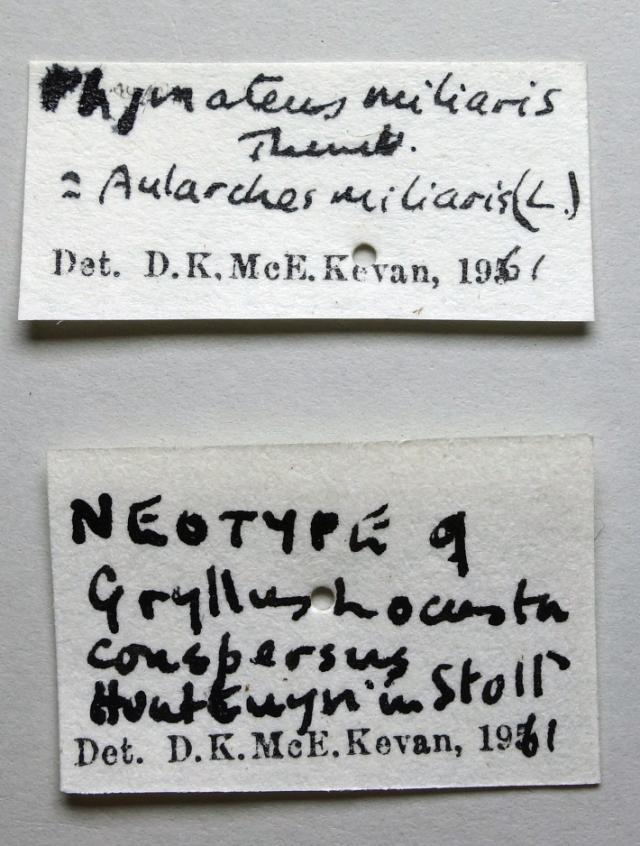 Phymateus miliaris
Thunb.
= Aularches miliaris (L.)
Det. D.K. McE. Kevan, 1961
NEOTYPE ♀
Gryllus Locusta
conspersus
Houttuyn in Stoll
Det. D.K. McE. Kevan, 1961